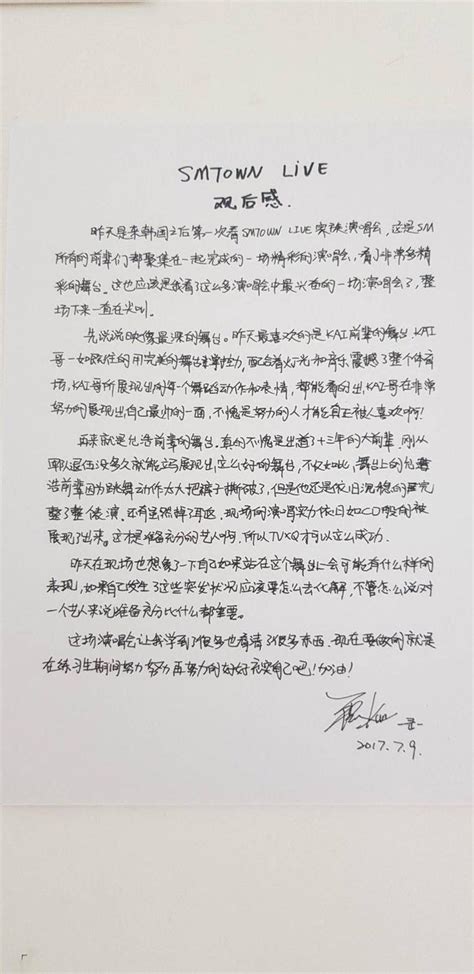 SMTOWN LIVE
观后感.
昨天是来韩国之后第一次看SMTOWN LIVE 家族演唱会，这是SM
所有的前辈们都聚集在一起完成的一场精彩的演唱会，看了非常多精
彩的舞台。这也应该是我看了这么多演唱会中最兴奋的一场演唱会了，整
场下来一直在尖叫。
先说说印像最深的舞台。昨天最喜欢的是KAI前辈的舞台。KAI
哥一如既往的用完美的舞台掌控力，配合着灯光和音乐震撼了整个体育
场，KAI哥所展现出的每个舞蹈动作和表情，都能看的出，KAI哥在非常
努力的展现出自己最帅的一面，不愧是努力的人才能真正被人喜欢啊！
再来就是允浩前辈的舞台。真的不愧是出道了十三年的大前辈，刚从
部队退伍没多久就能立马展现出这么好的舞台，不仅如此，舞台上的允
浩前辈因为跳舞动作太大把裤子撕破了，但是他还是依旧沉稳的
完了整个表演。还有虽然掉了耳返，现场的演唱实力依旧如CD般的被
展现了出来。这才是准备充分的艺人啊，所以TVXQ才可以这么成功.
昨天在现场也想象了一下自己如果站在这个舞台上会可能有什么样的
表现，如果自己发生了这些突发状况应该要怎么去化解，不管怎么说对
一个艺人来说准备充分比什么都重要。
这场演唱会让我学到了很多也看清了很多东西，现在要做的就是
在练习生期间努力努力再努力的好好充实自己吧！加油！
2017.7.9.